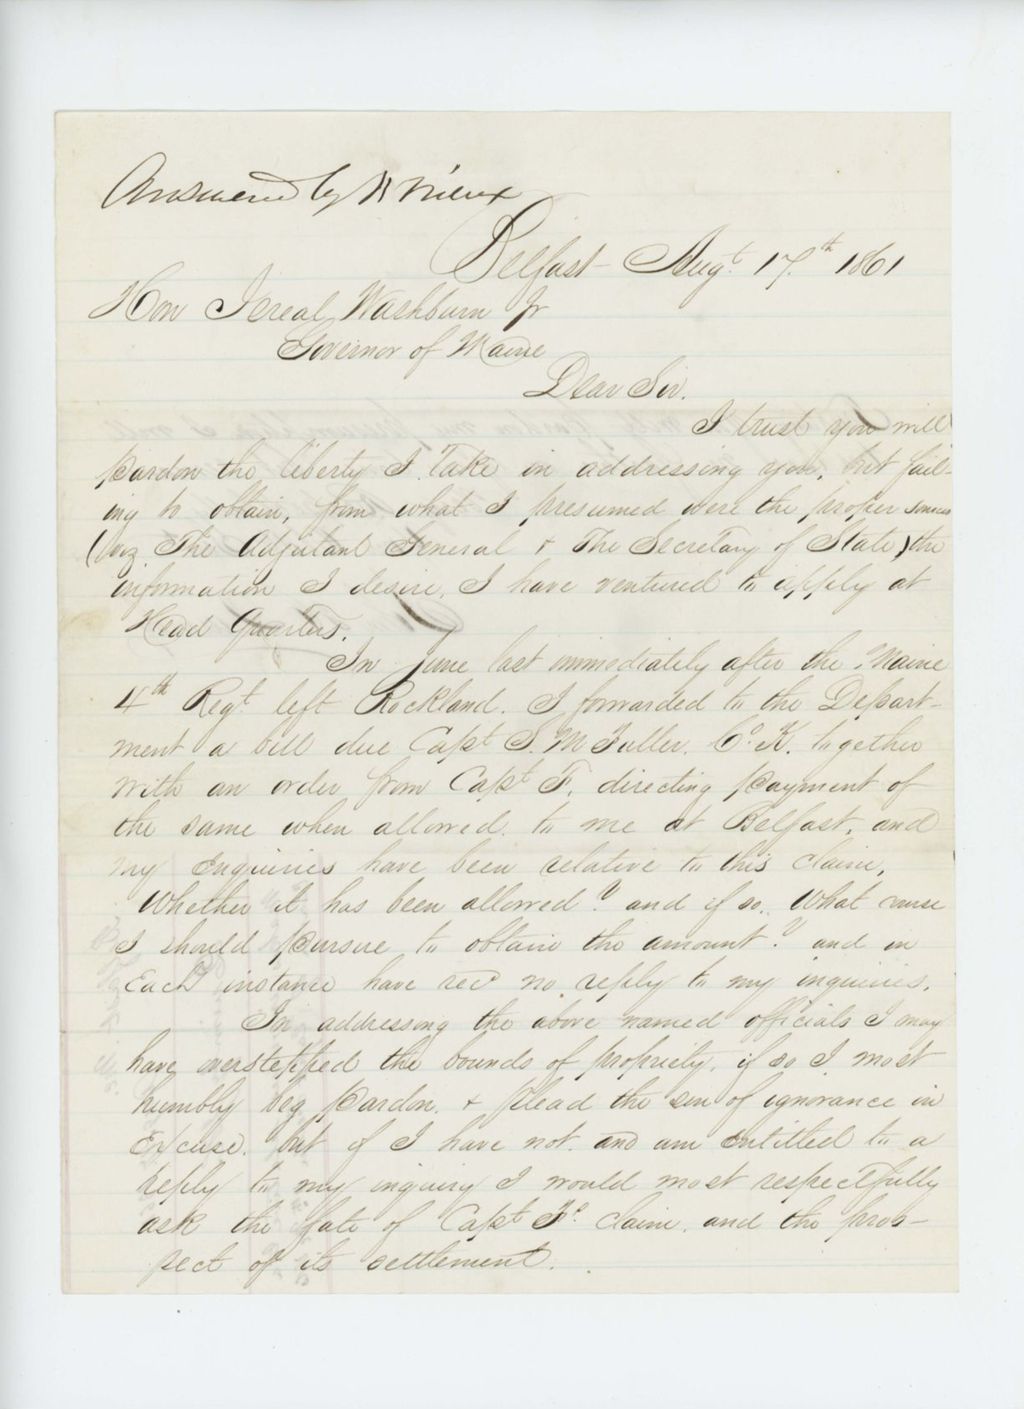 Answered by
Belfast Augt. 17.th 1861
Hon Isreal Washburn Jr
Governor of Maine
Dear Sir.
I trust you will
pardon the liberty I take in addressing you, but fail-
ing to obtain, from what I presumed were the proper sources
(viz The Adjutant General & The Secretary of State) the
information I desire, I have ventured to apply at
Head Quarters.
In June last immediately after the Maine
4th Regt. left Rockland. I forwarded to the Depart-
ment a bill due Capt S. M Fuller. Co. K. together
with an order from Capt F. directing payment of
the same when allowed. to me at Belfast, and
my Enquiries have been relative to this claim,
Whether it has been allowed? and if so, What
I should pursue to obtain the amount? and in
Each instance have recd no reply to my inquiries.
In addressing the above named officials I may
have overstepped the bounds of propriety, if so I most
humbly beg pardon, & plead the sin of ignorance in
Excuse. but if I have not and am Entitled to a
reply to my inquiry I would most respectfully
ask the fate of Capt Fs. claim, and the pros-
pect of its settlement.